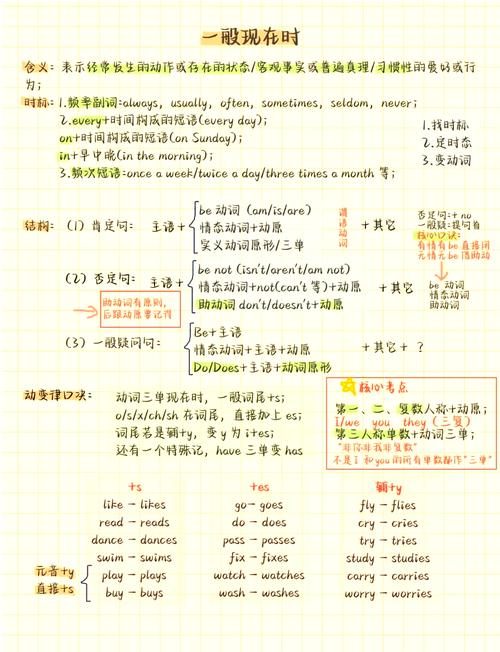 一般现在时
含义：表示经常发生的动作或存在的状态/客观事实或普遍真理/习惯性的爱好或行
为；
时标：1.频率副词:always, usually, often, sometimes, seldom, never；
2.every+时间构成的短语(every day)；
on+时间构成的短语(on Sunday)；
in+早中晚(in the morning)；
3.频次短语:once a week/twice a day/three times a month 等；
1.找时标
2.定时态
3.变动词
结构：（1）肯定句： 主语+
be 动词（am/is/are）
情态动词+动原
实义动词原形/三单
谓语动词
+其它
否定句:+ no
一般疑:提句首
核心口诀:
有情有be 直接闭
无情无be 借助动
be 动词
情态动词
助动词
（2）否定句： 主语+
be not (isn't/aren't/am not)
情态动词+not(can't 等)+动原
助动词 don't/doesn't+动原
+其它
助动词有原则，
后跟动原要记得
（3）一般疑问句：
Be+主语
情态动词+主语+动原
Do/Does+主语+动词原形
+其它+ ？
动变律口诀：
动词三单现在时，一般词尾+s;
o/s/x/ch/sh 在词尾，直接加上 es;
词尾若是辅+y, 变 y 为 i+es;
还有一个特殊记，have 三单变 has
核心考点
第一、二、复数人称+动原；
I/we you they（三复）
第三人称单数+动词三单；
"非你非我非复数"
不是I 和you的所有单数都作"三单"
+s
like - likes
read - reads
dance - dances
swim - swims
play - plays
buy - buys
元音+y
直接+s
+es
go- goes
do - does
pass - passes
fix - fixes
watch - watches
wash - washes
辅+y
fly - flies
cry - cries
try - tries
study - studies
carry - carries
worry - worries